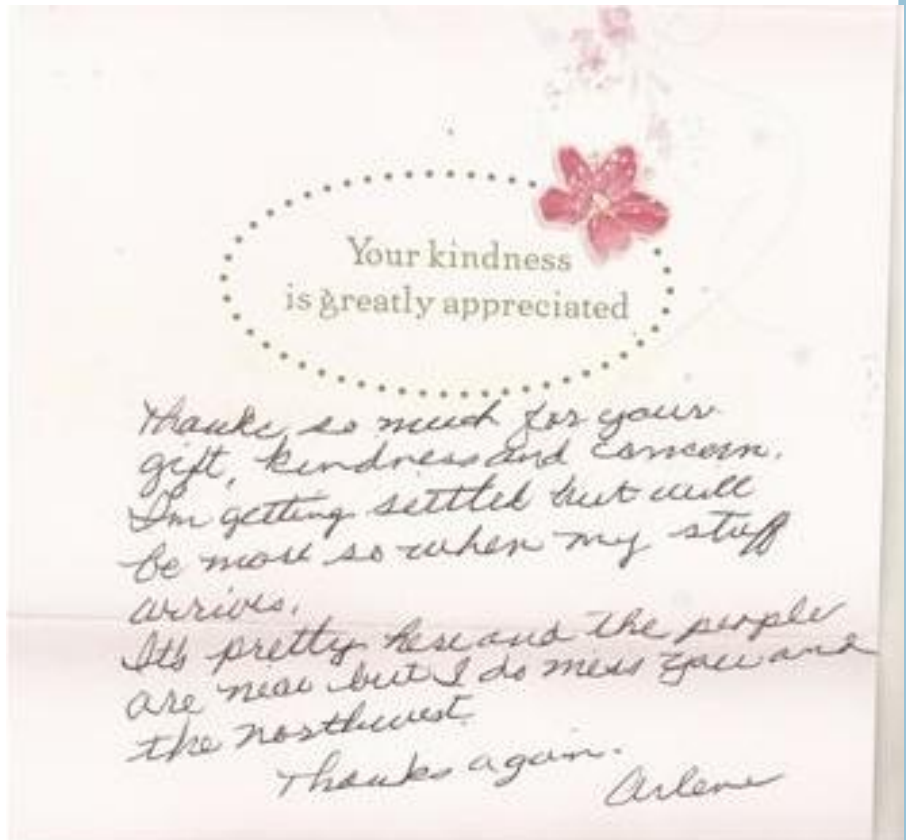 Your kindness
is greatly appreciated
Thanks so much for your
gift, kindness and concern.
I'm getting settled but will
be more so when my stuff
arrives.
It's pretty here and the people
are nice but I do miss you and
the northwest.
Thanks again.
Arlene